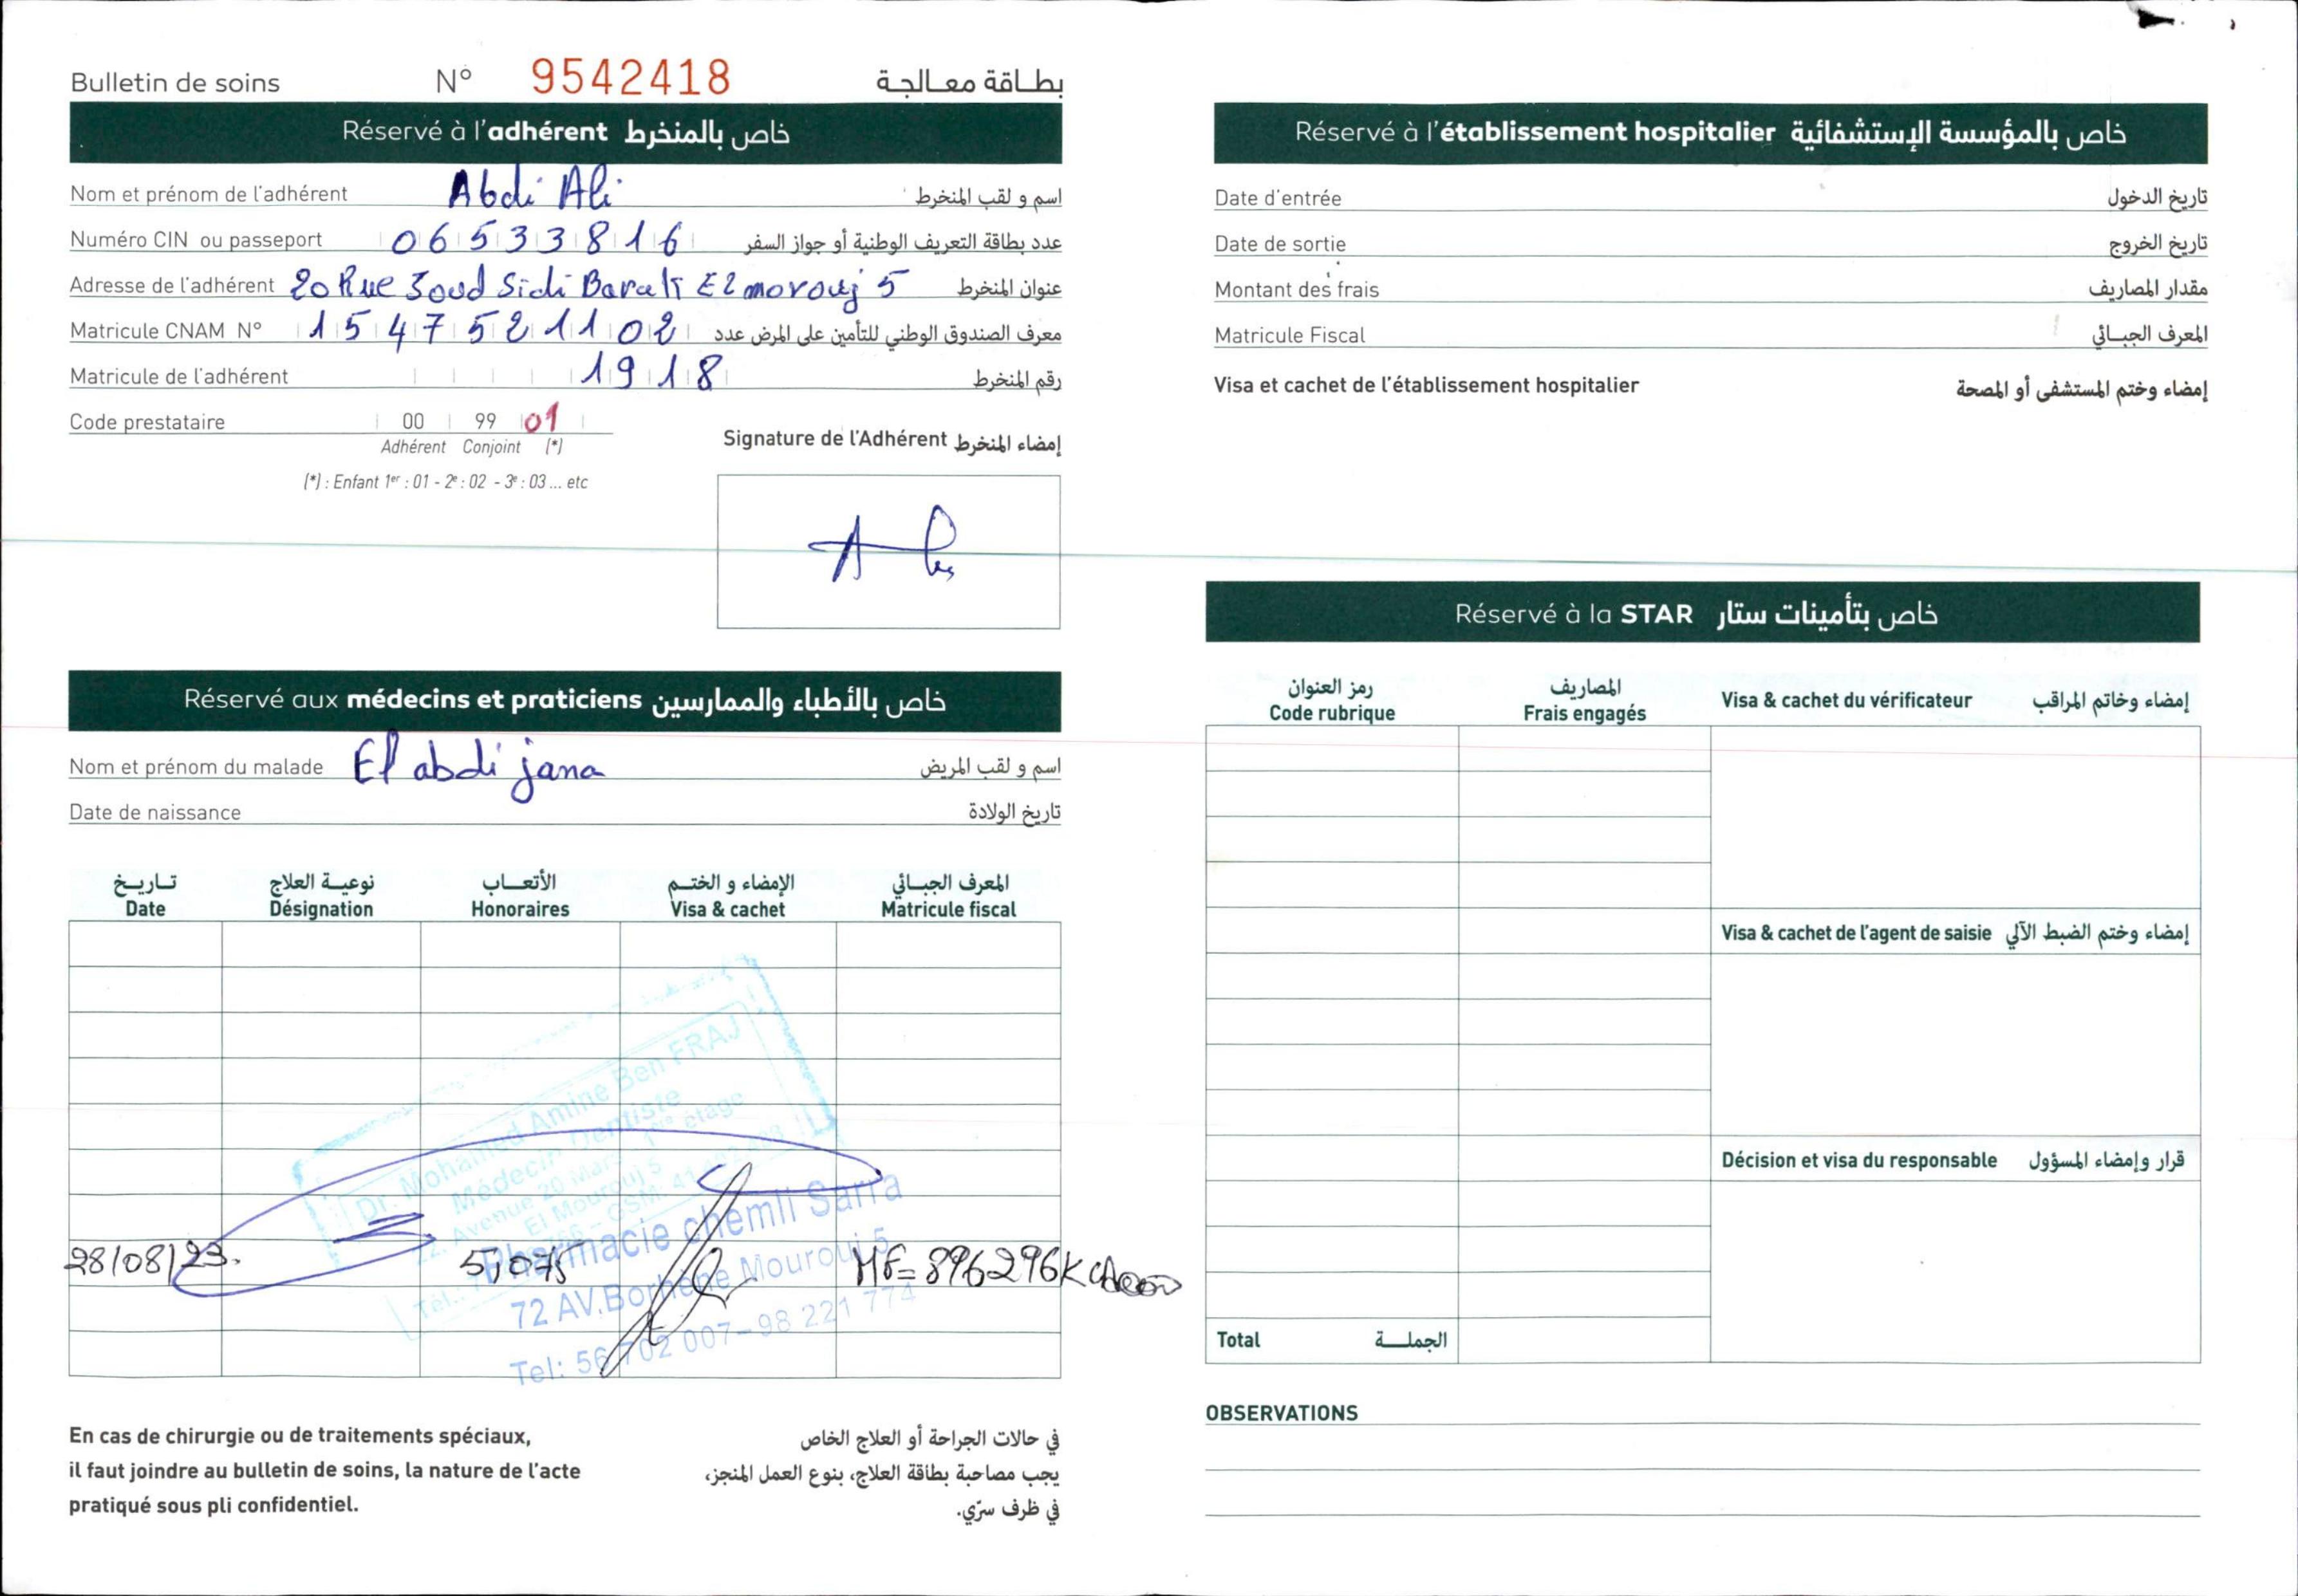 Bulletin de soins N° 9542418 بطاقة معالجة
Réservé à l'adhérent خاص بالمنخرط
Nom et prénom de l'adhérent Abdi Ali اسم و لقب المنخرط
Numéro CIN ou passeport 06533816 عدد بطاقة التعريف الوطنية أو جواز السفر
Adresse de l'adhérent 20 Rue Soud Sidi Barak El morouj 5 عنوان المنخرط
Matricule CNAM N° 1547521102 معرف الصندوق الوطني للتأمين على المرض عدد
Matricule de l'adhérent 1918 رقم المنخرط
Code prestataire 00 99 01
Adhérent Conjoint (*)
(*) : Enfant 1er : 01 - 2e : 02 - 3e : 03 ... etc
Signature de l'Adhérent إمضاء المنخرط
Réservé aux médecins et praticiens خاص بالأطباء والممارسين
Nom et prénom du malade El abdi jana اسم و لقب المريض
Date de naissance تاريخ الولادة
تـاريـخ نوعيـة العلاج الأتعـاب الإمضاء و الختـم المعرف الجبـائي
Date Désignation Honoraires Visa & cachet Matricule fiscal
Dr. Mohamed Amine Ben FRAJ
Médecin Dentiste
Avenue 20 Mars 1er étage
El Mourouj 5
GSM: 41
Tél.:
28/08/23. 5,075 MF= 896296K
Pharmacie chemli Sarra
72 AV.Borhène Mourouj 5
Tel: 56 702 007-98 221 774
En cas de chirurgie ou de traitements spéciaux,
il faut joindre au bulletin de soins, la nature de l'acte
pratiqué sous pli confidentiel.
في حالات الجراحة أو العلاج الخاص
يجب مصاحبة بطاقة العلاج، بنوع العمل المنجز،
في ظرف سرّي.
Réservé à l'établissement hospitalier خاص بالمؤسسة الإستشفائية
Date d'entrée تاريخ الدخول
Date de sortie تاريخ الخروج
Montant des frais مقدار المصاريف
Matricule Fiscal المعرف الجبـائي
Visa et cachet de l'établissement hospitalier إمضاء وختم المستشفى أو المصحة
Réservé à la STAR خاص بتأمينات ستار
رمز العنوان المصاريف
Code rubrique Frais engagés Visa & cachet du vérificateur إمضاء وخاتم المراقب
Visa & cachet de l'agent de saisie إمضاء وختم الضبط الآلي
Décision et visa du responsable قرار وإمضاء المسؤول
Total الجملـــة
OBSERVATIONS